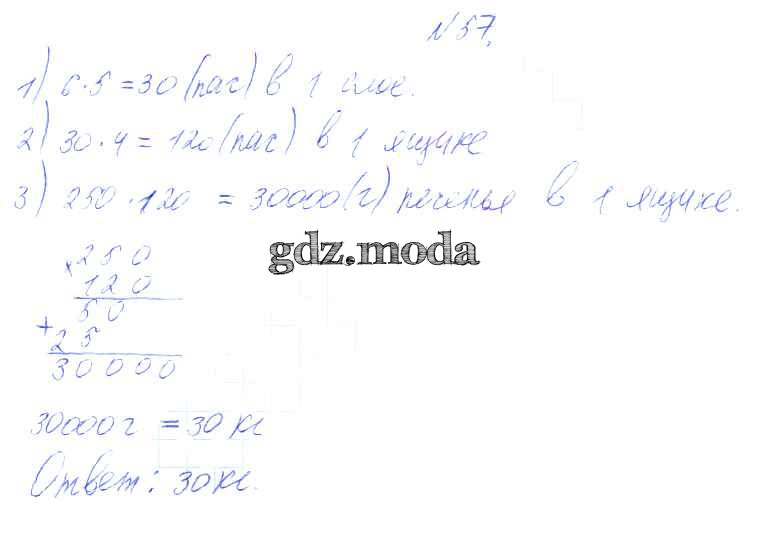 N 57.
1) 6·5=30(пас) в 1 слое.
2) 30·4=120(пас) в 1 ящике
3) 250·120=30000(г) печенья в 1 ящике.
gdz.moda
×250
120
50
+25
30000
30000г = 30 кг
Ответ: 30 кг.